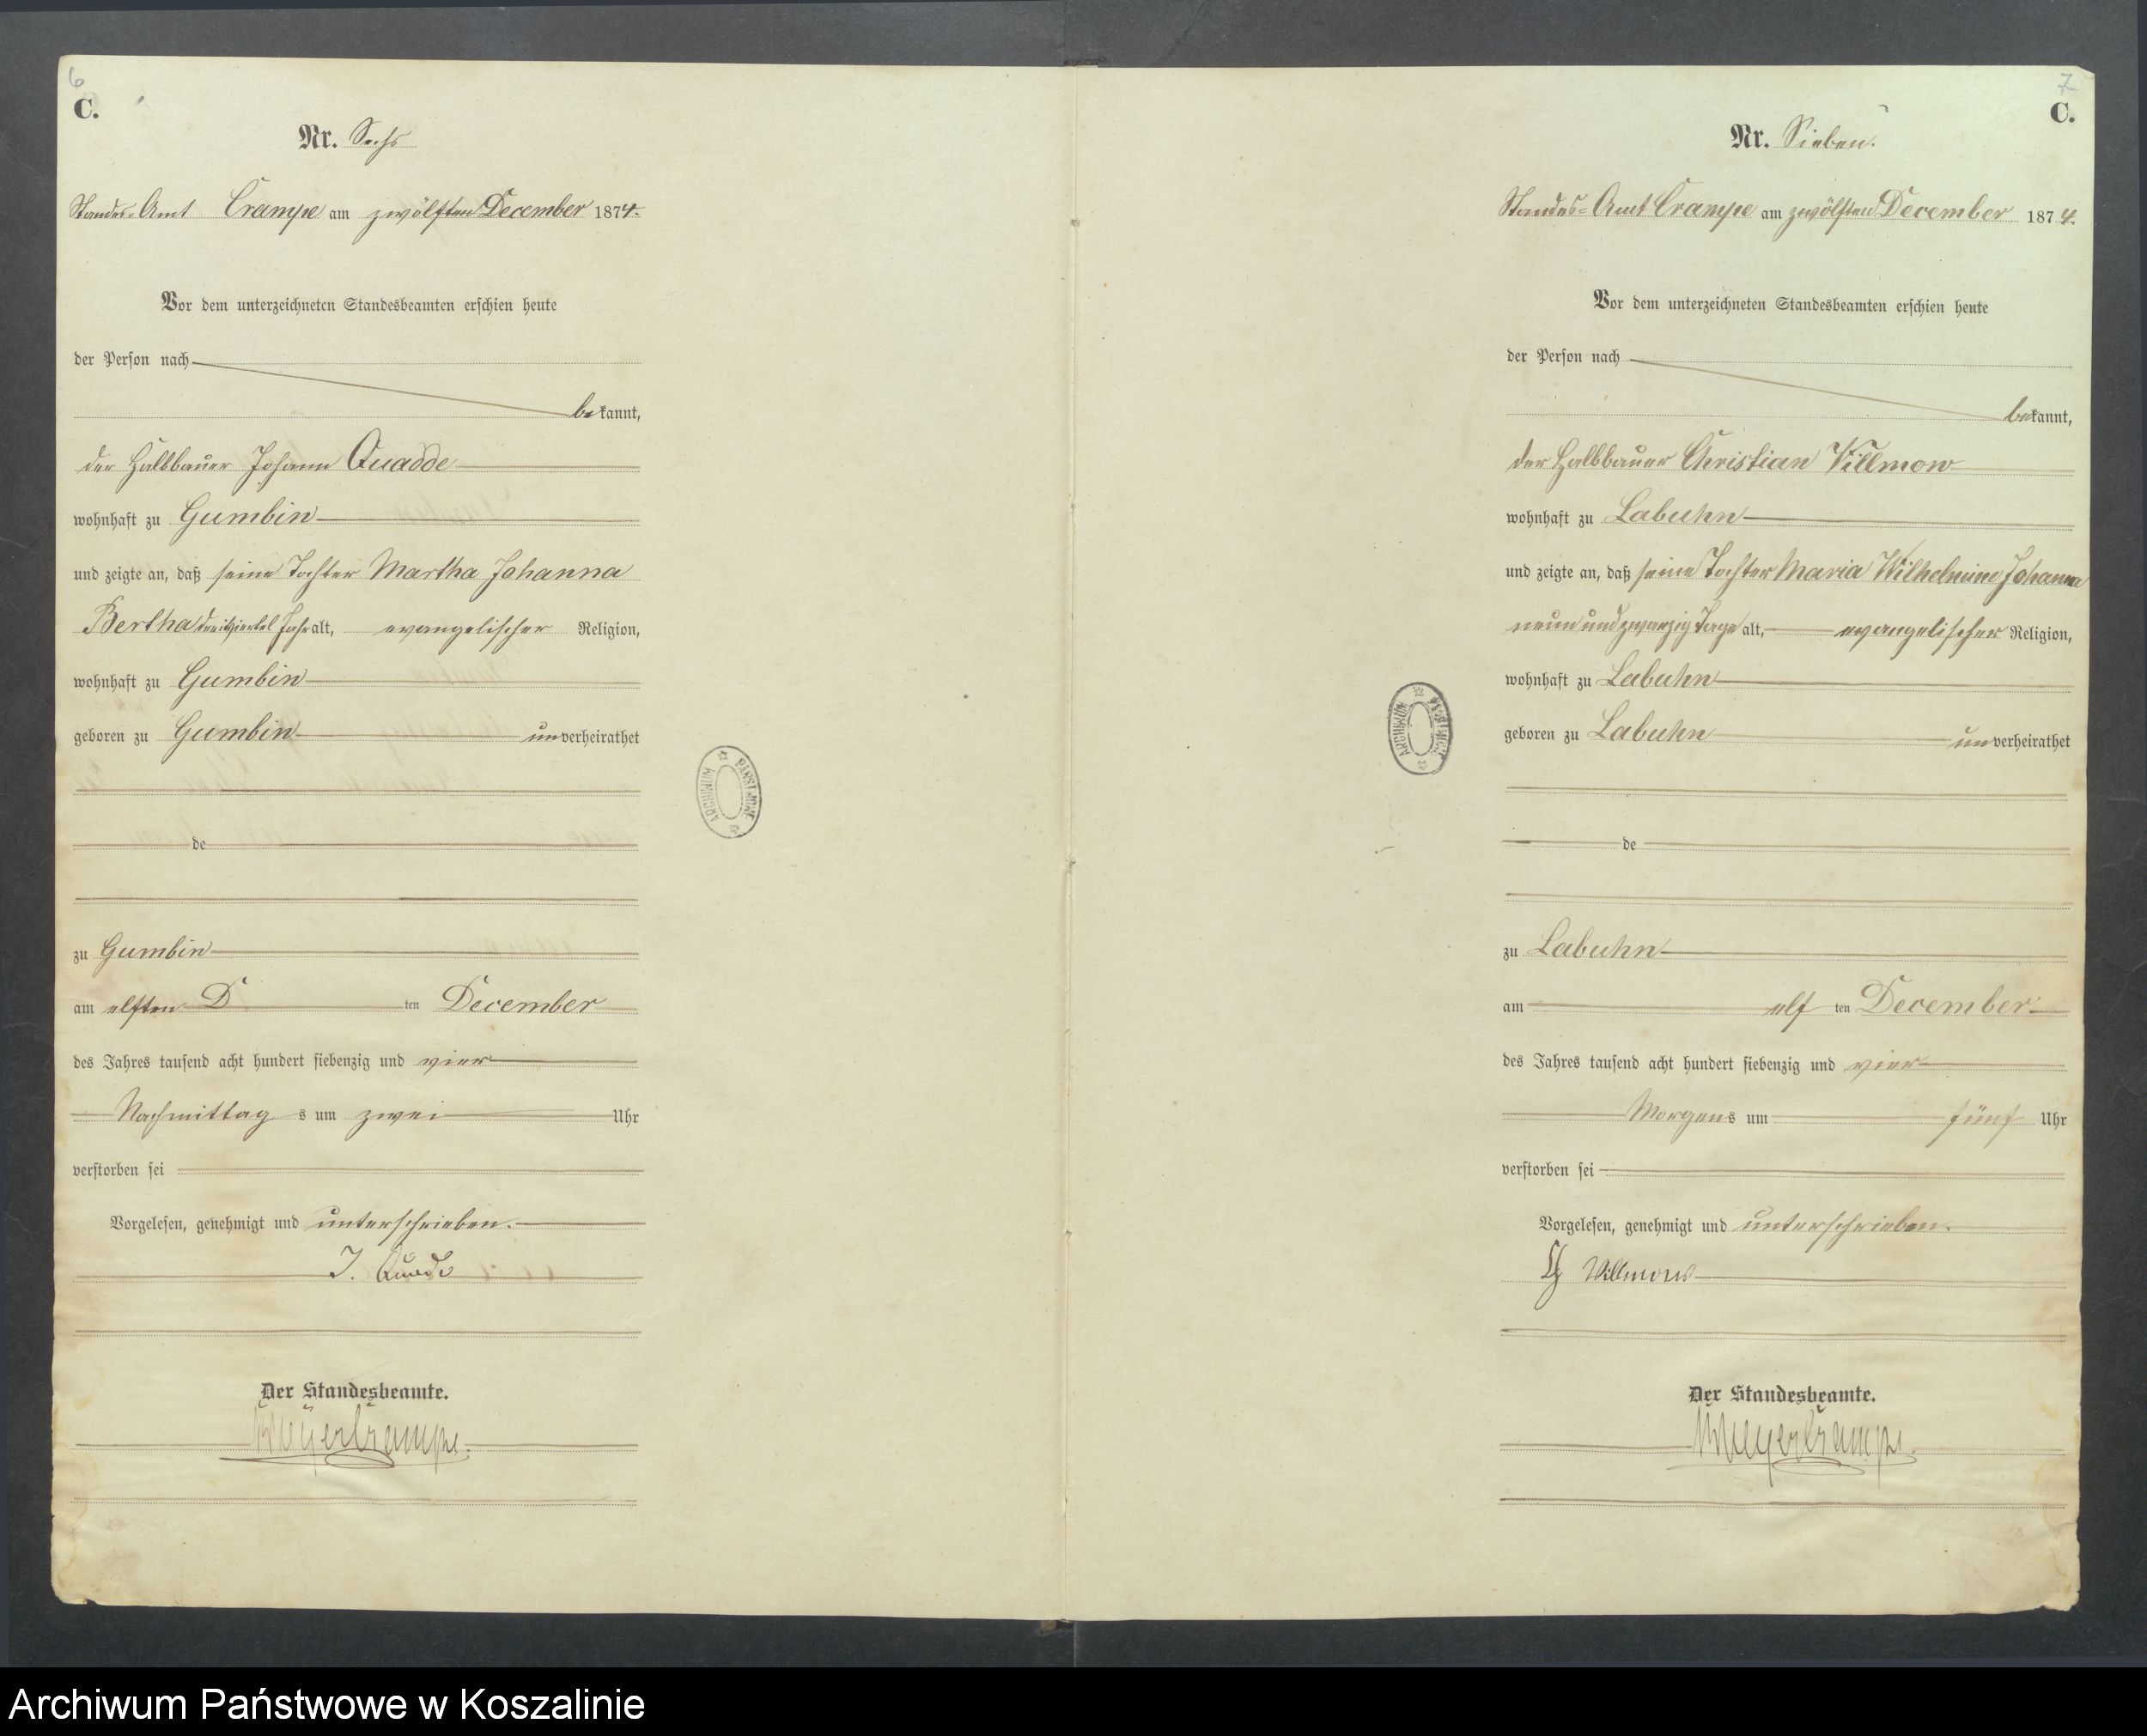 6
C.
Nr. Sechs
Standes-Amt Crampe am zwölften December 1874.
Vor dem unterzeichneten Standesbeamten erschien heute
der Person nach
bekannt,
der Halbbauer Johann Quadde
wohnhaft zu Gumbin
und zeigte an, daß seine Tochter Martha Johanna
Bertha dreiviertel Jahr alt, evangelischer Religion,
wohnhaft zu Gumbin
geboren zu Gumbin unverheirathet
de
zu Gumbin
am elften D ten December
des Jahres tausend acht hundert siebenzig und vier
Nachmittag s um zwei Uhr
verstorben sei
Vorgelesen, genehmigt und unterschrieben.
J. Quade
Der Standesbeamte.
ARCHIWUM PAŃSTWOWE
7
C.
Nr. Sieben.
Standes-Amt Crampe am zwölften December 1874.
Vor dem unterzeichneten Standesbeamten erschien heute
der Person nach
bekannt,
der Halbbauer Christian Villmow
wohnhaft zu Labuhn
und zeigte an, daß seine Tochter Maria Wilhelmine Johanne
neun und zwanzig Tage alt, evangelischer Religion,
wohnhaft zu Labuhn
geboren zu Labuhn unverheirathet
de
zu Labuhn
am elf ten December
des Jahres tausend acht hundert siebenzig und vier
Morgens um fünf Uhr
verstorben sei
Vorgelesen, genehmigt und unterschrieben.
Willmow
Der Standesbeamte.
ARCHIWUM PAŃSTWOWE
Archiwum Państwowe w Koszalinie